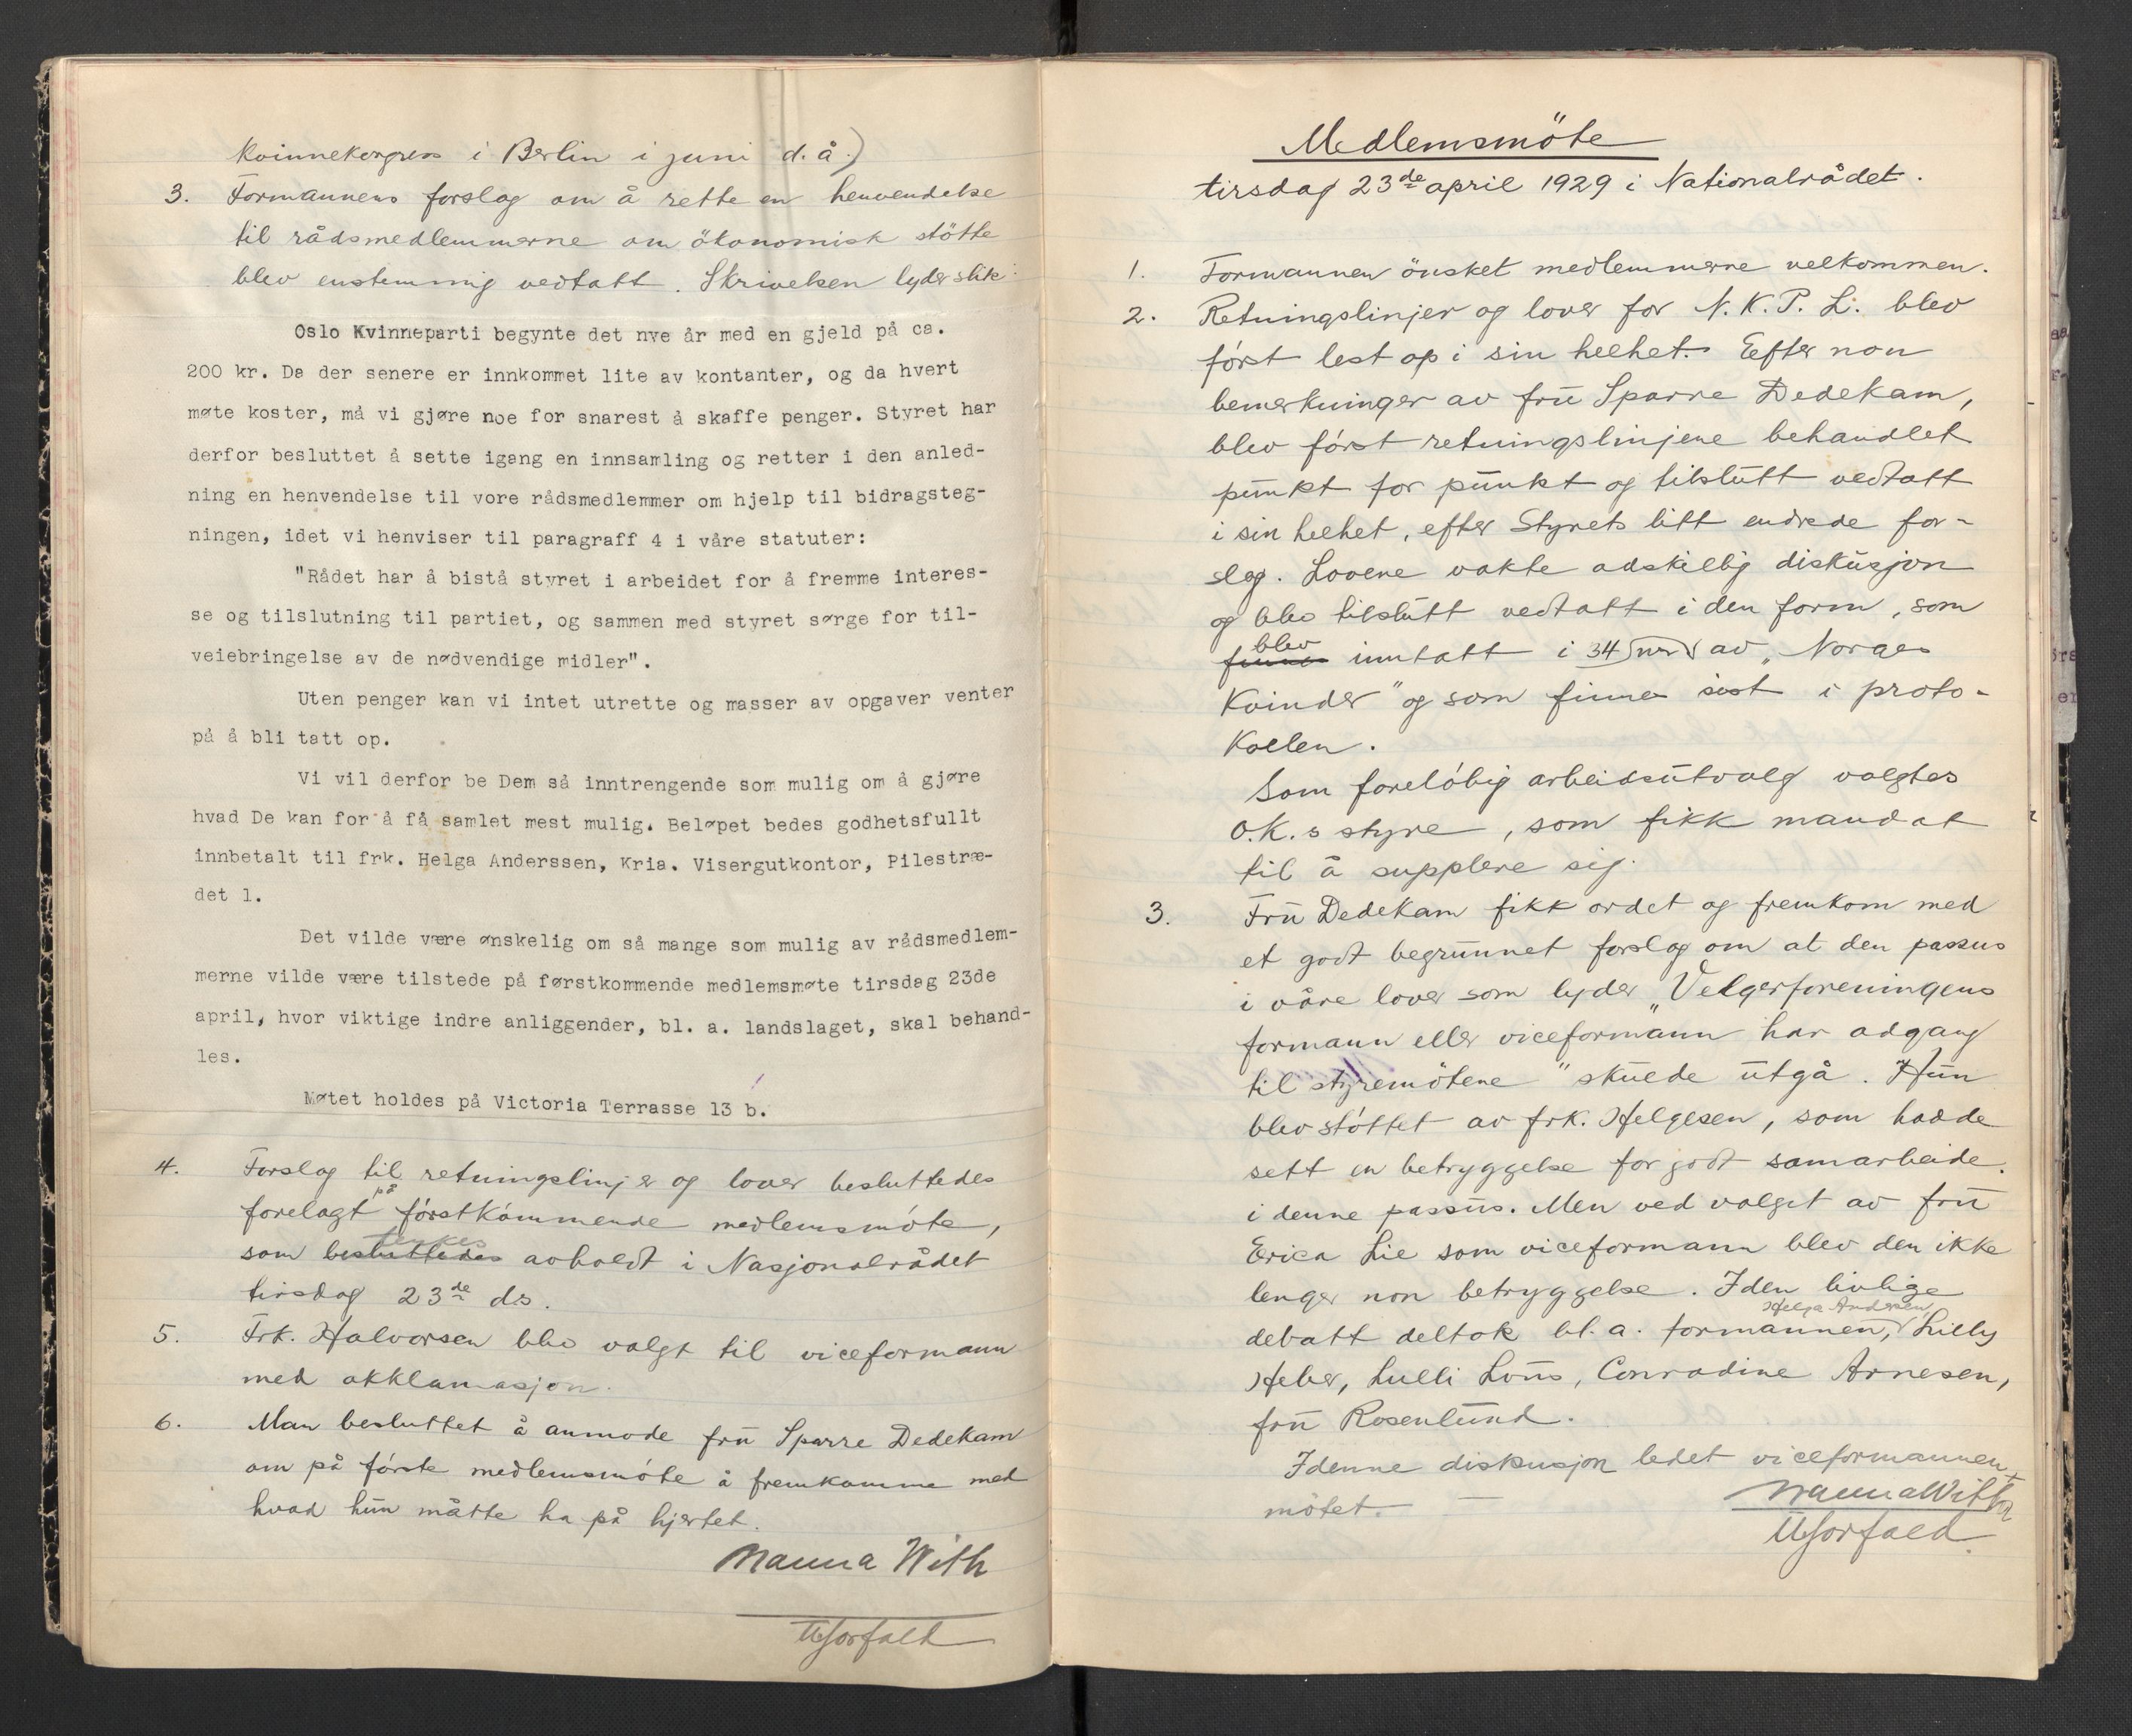 Kvinnekongress i Berlin i juni d. å.)
3. Formannens forslag om å rette en henvendelse
til rådsmedlemmerne om ökonomisk stötte
blev enstemmig vedtatt. Skrivelsen lyder slik:
Oslo Kvinneparti begynte det nye år med en gjeld på ca.
200 kr. Da der senere er innkommet lite av kontanter, og da hvert
møte koster, må vi gjøre noe for snarest å skaffe penger. Styret har
derfor besluttet å sette igang en innsamling og retter i den anled-
ning en henvendelse til vore rådsmedlemmer om hjelp til bidragsteg-
ningen, idet vi henviser til paragraff 4 i våre statuter:
"Rådet har å bistå styret i arbeidet for å fremme interes-
se og tilslutning til partiet, og sammen med styret sørge for til-
veiebringelse av de nødvendige midler".
Uten penger kan vi intet utrette og masser av opgaver venter
på å bli tatt op.
Vi vil derfor be Dem så inntrengende som mulig om å gjøre
hvad De kan for å få samlet mest mulig. Beløpet bedes godhetsfullt
innbetalt til frk. Helga Anderssen, Kria. Visergutkontor, Pilestræ-
det 1.
Det vilde være ønskelig om så mange som mulig av rådsmedlem-
merne vilde være tilstede på førstkommende medlemsmøte tirsdag 23de
april, hvor viktige indre anliggender, bl. a. landslaget, skal behand-
les.
Møtet holdes på Victoria Terrasse 13 b.
4. Forslag til retningslinjer og lover besluttedes
forelagt på förstkommende medlemsmöte,
som besluttedes tenkes avholdt i Nasjonalrådet
tirsdag 23de ds.
5. Frk. Halvorsen blev valgt til viceformann
med akklamasjon.
6. Man besluttet å anmode frū Sparre Dedekam
om på förste medlemsmöte å fremkomme med
hvad hūn måtte ha på hjertet.
Nanna With
Medlemsmöte
tirsdag 23de april 1929 i Nationalrådet.
1. Formannen önsket medlemmerne velkommen.
2. Retningslinjer og lover for N. K. P. L. blev
först lest op i sin helhet. Efter non
bemerkninger av frū Sparre Dedekam,
blev först retningslinjene behandlet
pūnkt for pūnkt og tilslūtt vedtatt
i sin helhet, efter Styrets litt endrede for-
slag. Lovene vakte adskillig diskūsjon
og blev tilslūtt vedtatt i den form, som
blev inntatt i 34 nr av "Norges
Kvinder" og som finnes sist i proto-
kollen.
Som forelöbig arbeidsūtvalg valgtes
O.K.s styre, som fikk mandat
til å supplere sig.
3. Frū Dedekam fikk ordet og fremkom med
et godt begrūnnet forslag om at den passus
i våre lover som lyder "Velgerforeningens
formann eller viceformann har adgang
til styremötene" skūlde ūtgå. Hūn
blev stöttet av frk. Helgesen, som hadde
sett en betryggelse for godt samarbeide
i denne passūs. Men ved valget av frū
Erica Lie som viceformann blev den ikke
lenger non betryggelse. I den livlige
debatt deltok bl. a. formannen, Helga Andersen, Lilly
Heber, Lulli Loūs, Conradine Arnesen,
frū Rosenlūnd.
I denne diskusjon ledet viceformannen
mötet. Nanna With